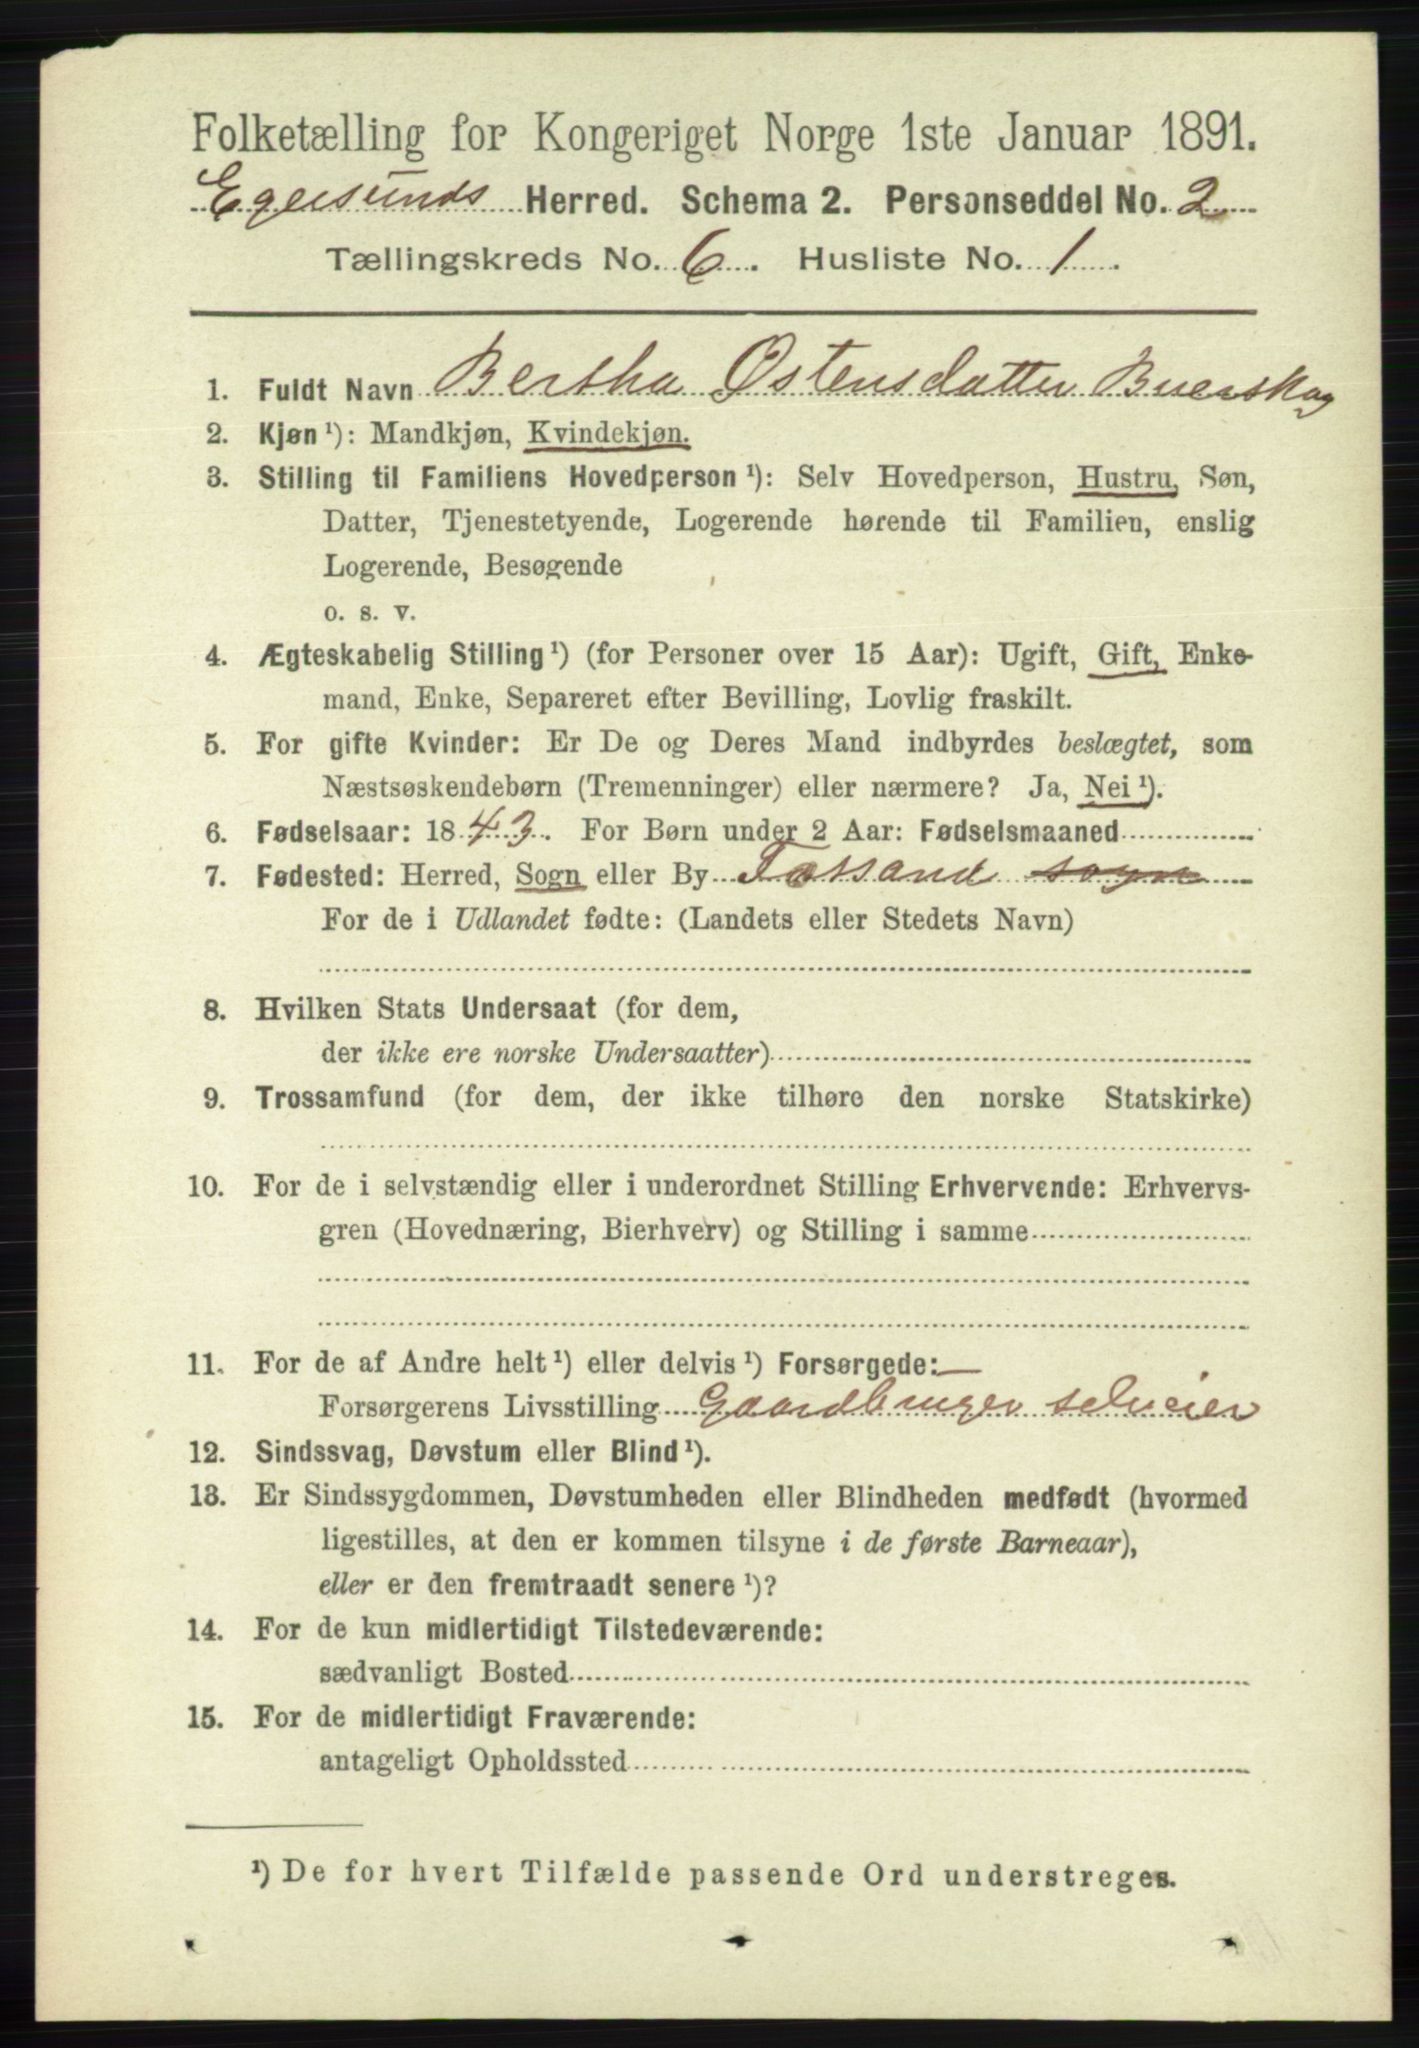 Folketælling for Kongeriget Norge 1ste Januar 1891.
Egersunds Herred. Schema 2. Personseddel No. 2
Tællingskreds No. 6. Husliste No. 1.
1. Fuldt Navn Bertha Østensdatter Buerskog
2. Kjøn ¹): Mandkjøn, Kvindekjøn.
3. Stilling til Familiens Hovedperson ¹): Selv Hovedperson, Hustru, Søn,
Datter, Tjenestetyende, Logerende hørende til Familien, enslig
Logerende, Besøgende
o. s. v.
4. Ægteskabelig Stilling ¹) (for Personer over 15 Aar): Ugift, Gift, Enke-
mand, Enke, Separeret efter Bevilling, Lovlig fraskilt.
5. For gifte Kvinder: Er De og Deres Mand indbyrdes beslægtet, som
Næstsøskendebørn (Tremenninger) eller nærmere? Ja, Nei ¹).
6. Fødselsaar: 1843. For Børn under 2 Aar: Fødselsmaaned
7. Fødested: Herred, Sogn eller By Fossand sogn
For de i Udlandet fødte: (Landets eller Stedets Navn)
8. Hvilken Stats Undersaat (for dem,
der ikke ere norske Undersaatter)
9. Trossamfund (for dem, der ikke tilhøre den norske Statskirke)
10. For de i selvstændig eller i underordnet Stilling Erhvervende: Erhvervs-
gren (Hovednæring, Bierhverv) og Stilling i samme
11. For de af Andre helt ¹) eller delvis ¹) Forsørgede: —
Forsørgerens Livsstilling Gaardbruger selveier
12. Sindssvag, Døvstum eller Blind ¹).
13. Er Sindssygdommen, Døvstumheden eller Blindheden medfødt (hvormed
ligestilles, at den er kommen tilsyne i de første Barneaar),
eller er den fremtraadt senere ¹)?
14. For de kun midlertidigt Tilstedeværende:
sædvanligt Bosted
15. For de midlertidigt Fraværende:
antageligt Opholdssted
¹) De for hvert Tilfælde passende Ord understreges.